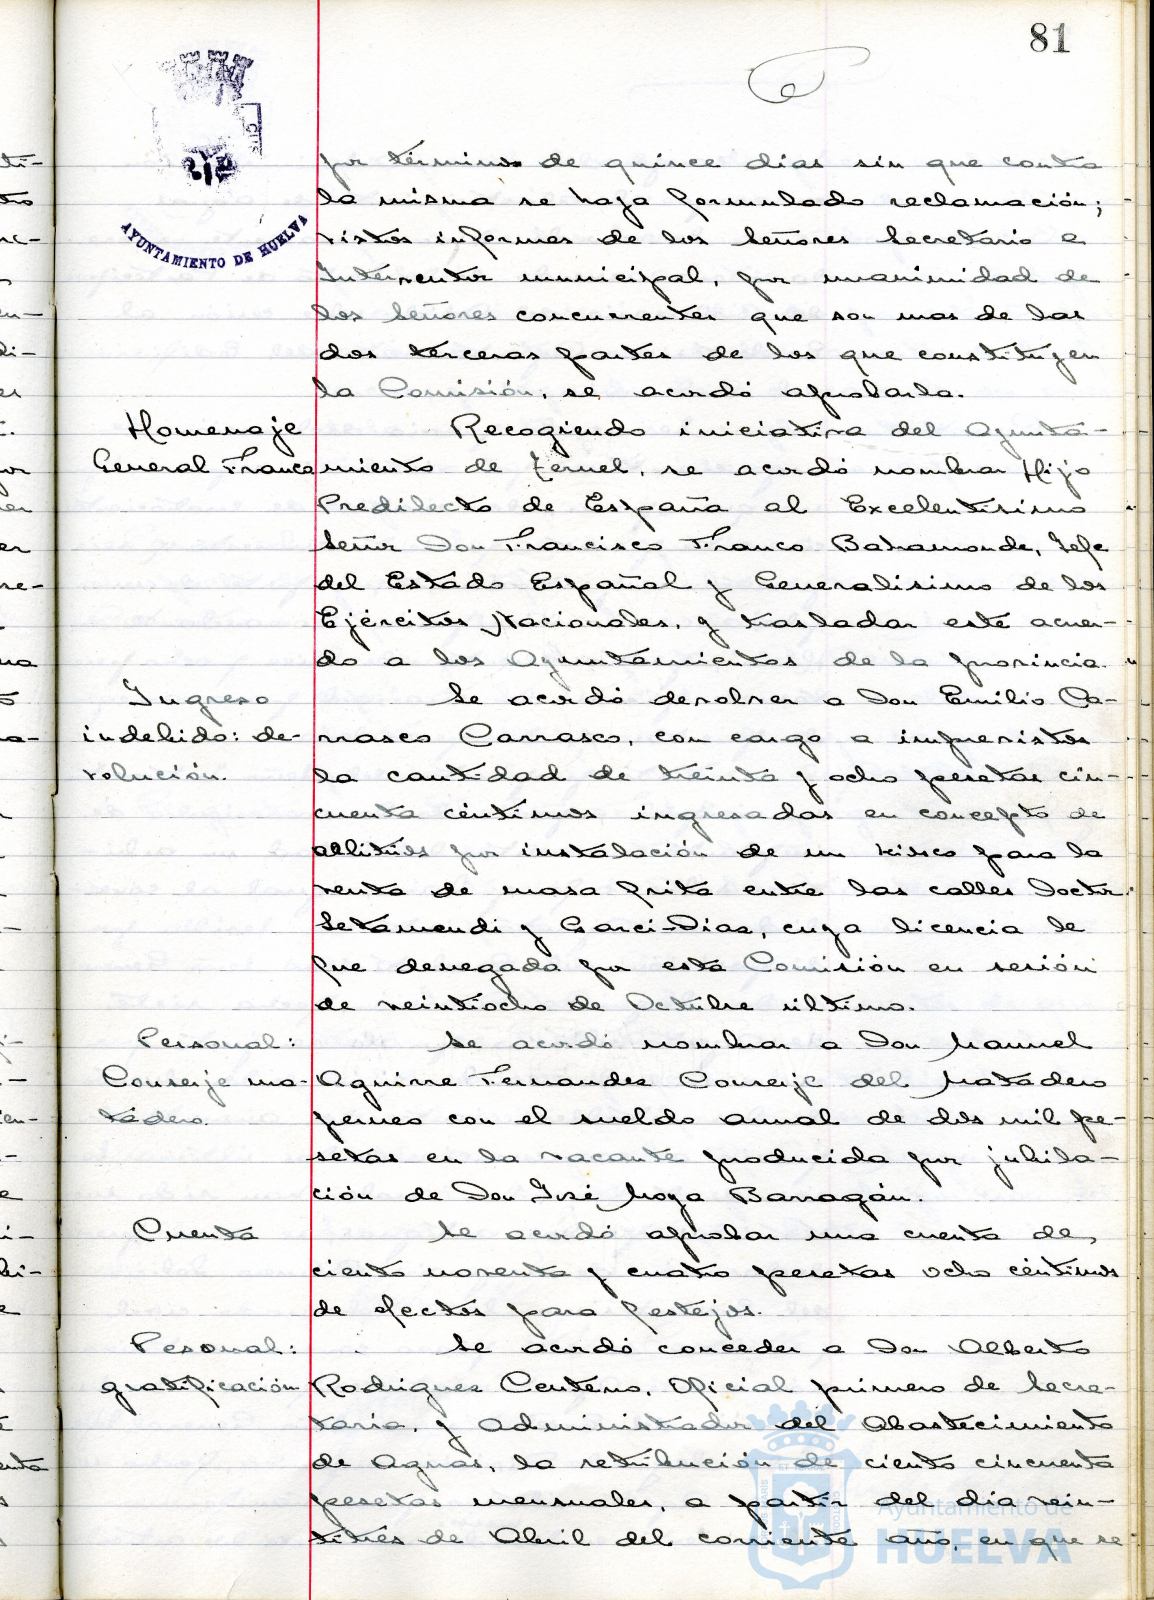 81
AYUNTAMIENTO DE HUELVA
por término de quince dias sin que contra
la misma se haya formulado reclamación;
vistos informes de los Señores Secretario e
Interventor municipal, por unanimidad de
los Señores concurrentes que son mas de las
dos terceras partes de los que constituyen
la Comisión, se acordó aprobarla.
Homenaje
General Franco
Recogiendo iniciativa del Ayunta-
miento de Teruel, se acordó nombrar Hijo
Predilecto de España al Excelentísimo
Señor Don Francisco Franco Bahamonde, Jefe
del Estado Español y Generalísimo de los
Ejércitos Nacionales, y trasladar este acuer-
do a los Ayuntamientos de la provincia.
Ingreso
indebido: de-
volución.
Se acordó devolver a Don Emilio Ca-
rrasco Carrasco, con cargo a imprevistos
la cantidad de treinta y ocho pesetas cin-
cuenta céntimos ingresadas en concepto de
arbitrios por instalación de un kiosco para la
venta de masa frita entre las calles Doctor
Letamendi y Garci-Dias, cuya licencia le
fue denegada por esta Comisión en sesión
de veintiocho de Octubre último.
Personal:
Conserje ma-
tadero.
Se acordó nombrar a Don Manuel
Aguirre Fernandez Conserje del Matadero
perneo con el sueldo anual de dos mil pe-
setas en la vacante producida por jubila-
ción de Don José Moya Barragán.
Cuenta
Se acordó aprobar una cuenta de,
ciento noventa y cuatro pesetas ocho céntimos
de efectos para festejos.
Pesonal:
gratificación
Se acordó conceder a Don Alberto
Rodriguez Centeno, Oficial primero de Secre-
taria, y Administrador del Abastecimiento
de Aguas, la retribución de ciento cincuenta
pesetas mensuales, a partir del dia vein-
titrés de Abril del corriente año, en que se
Ayuntamiento de
HUELVA